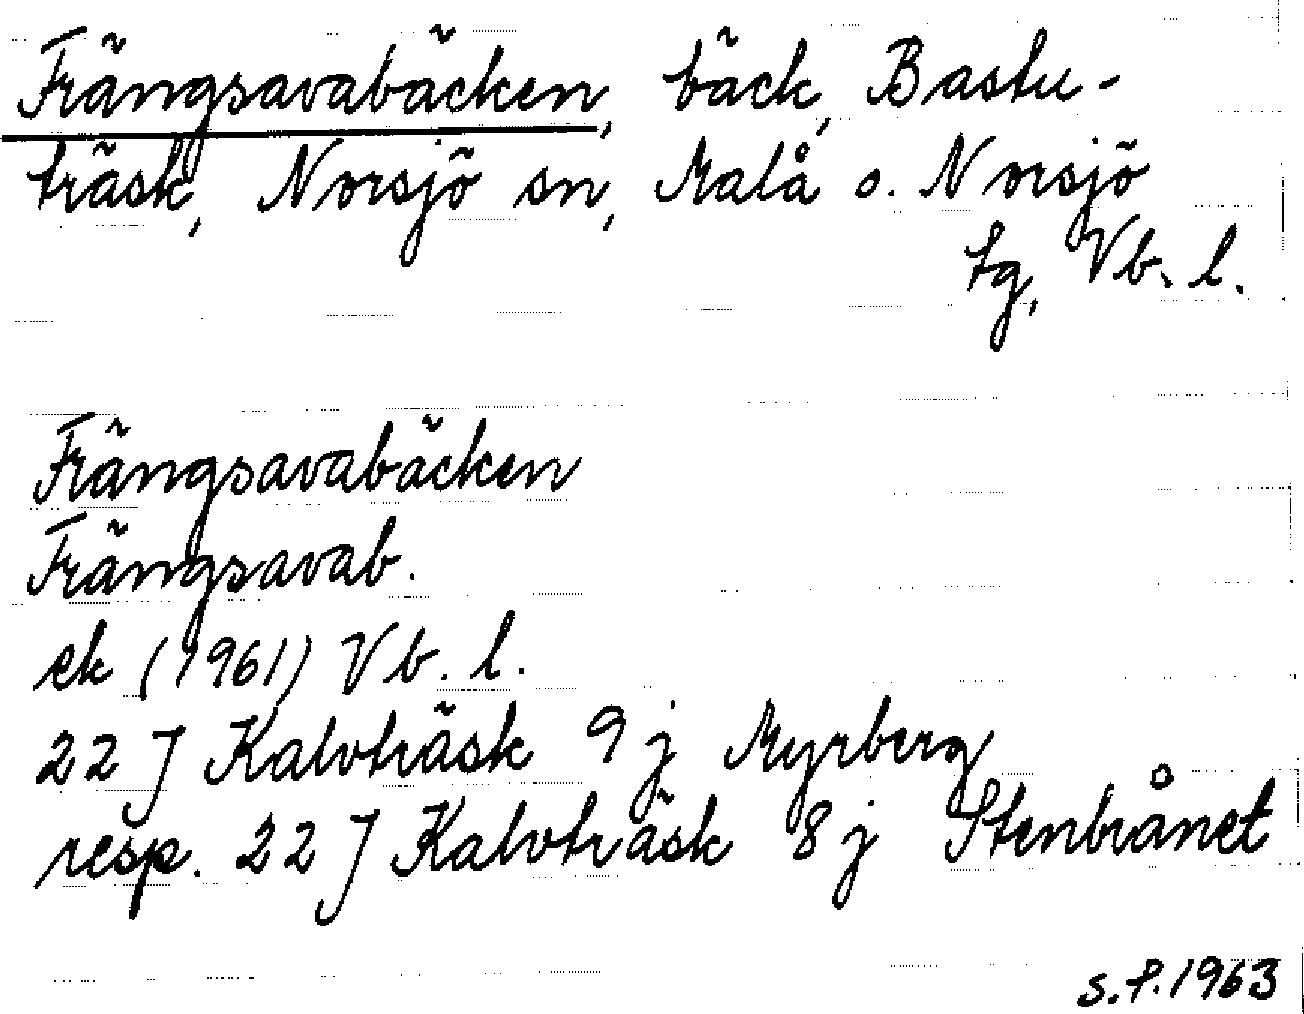 Frängsavabäcken, bäck, Bastu-
träsk, Norsjö sn, Malå o. Norsjö
tg, Vb. l.
Frängsavabäcken
Frängsavab.
ek (1961) Vb. l.
22 J Kalvträsk 9 j Myrberg
resp. 22 J Kalvträsk 8 j Stenbrånet
s.P. 1963